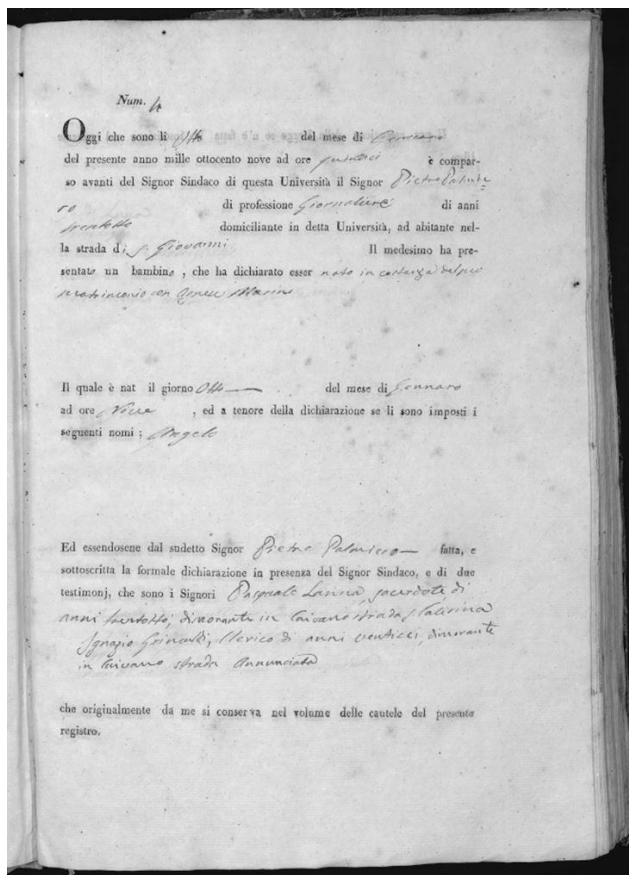 Num. 4
Oggi che sono li Otto del mese di Gennaro
del presente anno mille ottocento nove ad ore è compar-
so avanti del Signor Sindaco di questa Università il Signor Pietro Palmie=
ro di professione Giornaliere di anni
trentotto domiciliante in detta Università, ad abitante nel-
la strada di S. Giovanni Il medesimo ha pre-
sentato un bambino, che ha dichiarato esser nato in costanza del suo
matrimonio con Agnese Marino
Il quale è nat il giorno Otto del mese di Gennaro
ad ore Nove , ed a tenore della dichiarazione se li sono imposti i
seguenti nomi ; Angelo
Ed essendosene dal sudetto Signor Pietro Palmiero fatta, e
sottoscritta la formale dichiarazione in presenza del Signor Sindaco, e di due
testimonj, che sono i Signori Pasquale Lanna, sacerdote, di
anni trentotto, dimorante in Caivano strada S. Caterina
Ignazio Clerico di anni dimorante
in Caivano strada Annunciata
che originalmente da me si conserva nel volume delle cautele del presente
registro.